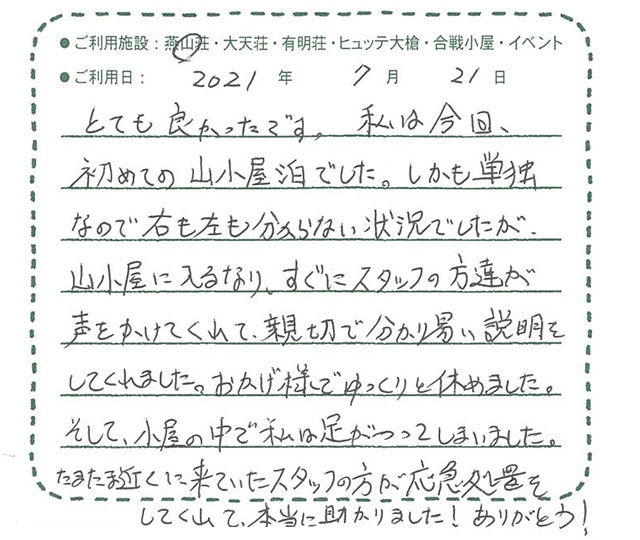 ●ご利用施設：燕山荘・大天荘・有明荘・ヒュッテ大槍・合戦小屋・イベント
●ご利用日： 2021 年 7 月 21 日
とても良かったです。私は今回、
初めての山小屋泊でした。しかも単独
なので右も左も分からない状況でしたが、
山小屋に入るなり、すぐにスタッフの方達が
声をかけてくれて、親切で分かり易い説明を
してくれました。おかげ様でゆっくりと休めました。
そして、小屋の中で私は足がつってしまいました。
たまたま近くに来ていたスタッフの方が応急処置を
してくれて、本当に助かりました！ありがとう！